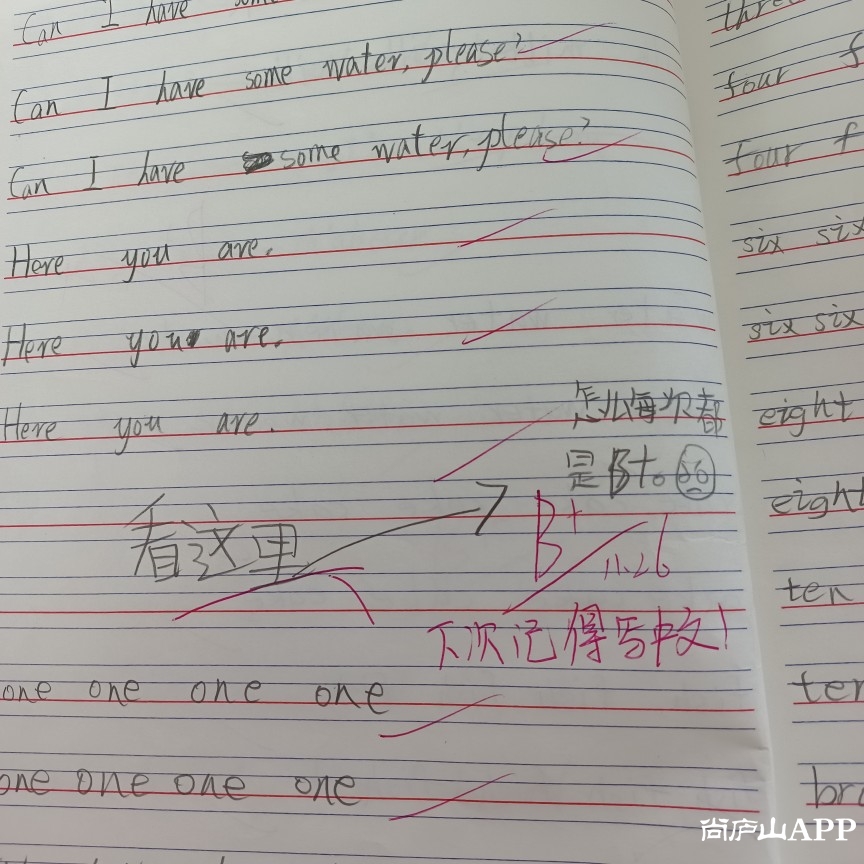 Can I have
Can I have some water, please?
Can I have some water, please?
Here you are.
Here you are.
Here you are.
怎么每次都
是B+。
看这里
B+
11.26
下次记得写中文!
one one one one
one one one one
three
four f
four f
six six
six six
eight
eight
ten
ten
bro
尚庐山APP